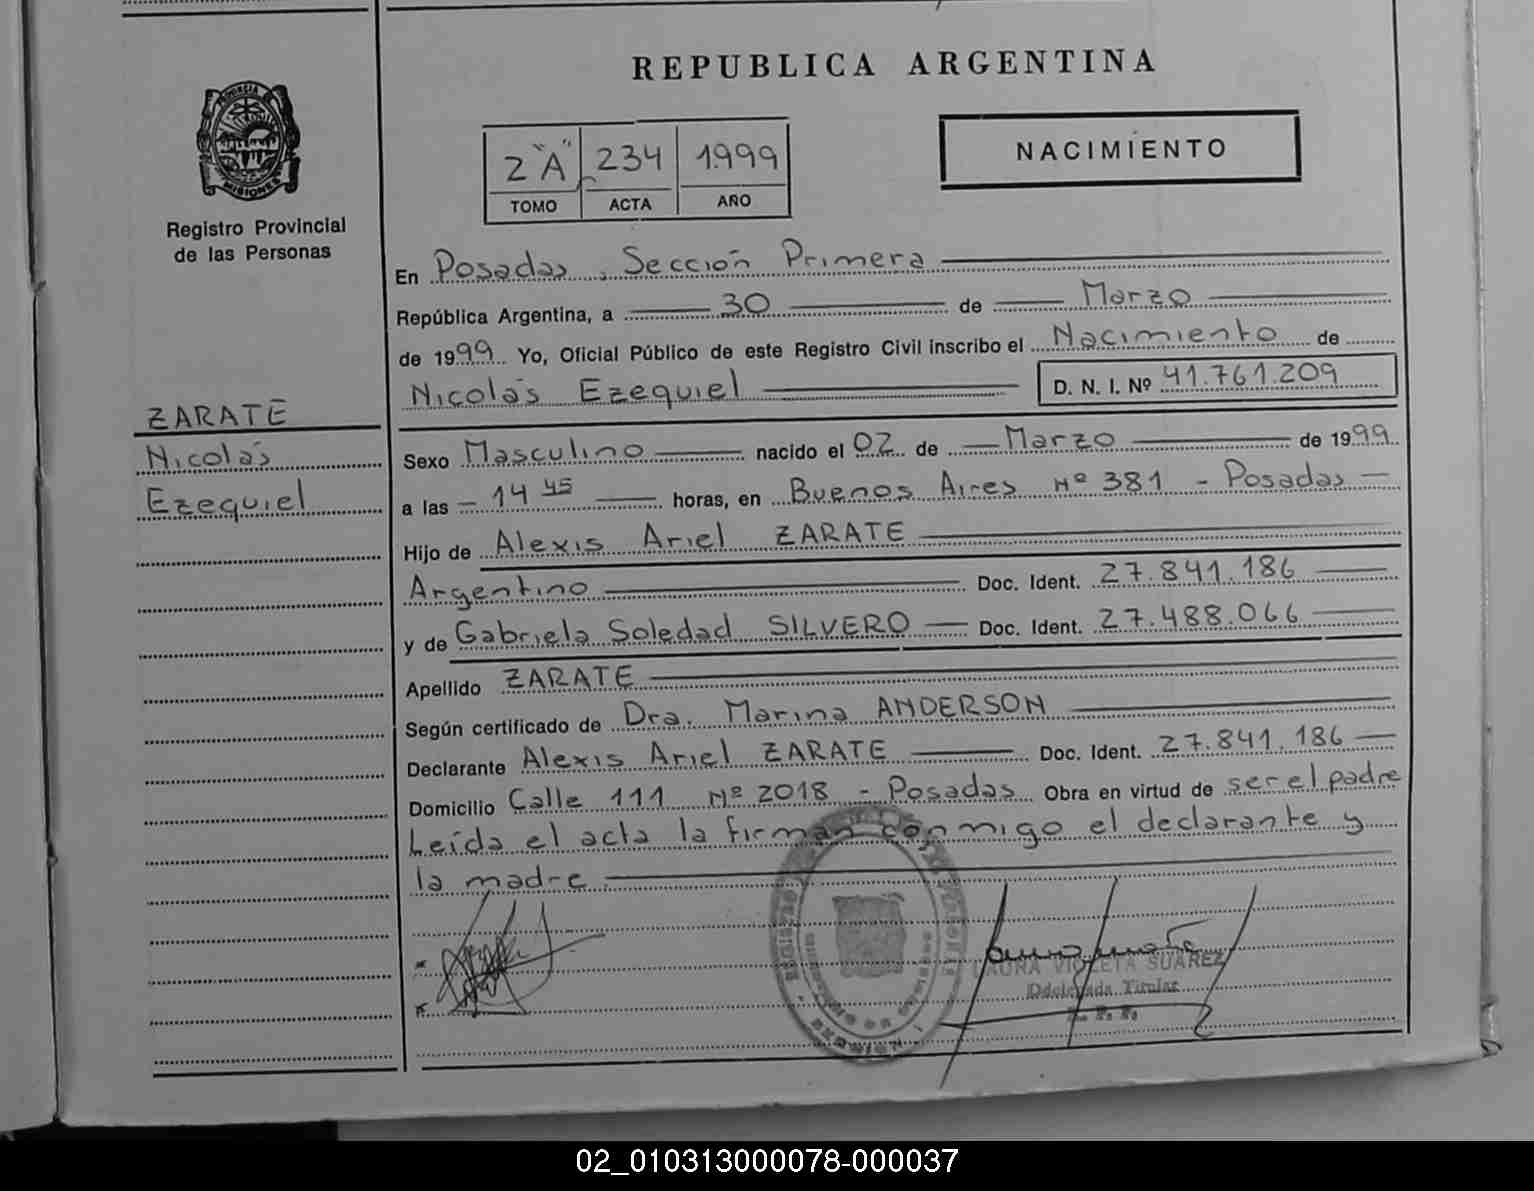 REPUBLICA ARGENTINA
PROVINCIA DE
MISIONES
Registro Provincial
de las Personas
2 "A" 234 1999
TOMO ACTA AÑO
NACIMIENTO
En Posadas, Sección Primera
República Argentina, a 30 de Marzo
de 1999 Yo, Oficial Público de este Registro Civil inscribo el Nacimiento de
Nicolás Ezequiel D. N. I. Nº 41.761.209
ZARATE
Nicolás
Ezequiel
Sexo Masculino nacido el 02 de Marzo de 1999
a las 14 45 horas, en Buenos Aires Nº 381 - Posadas
Hijo de Alexis Ariel ZARATE
Argentino Doc. Ident. 27.841.186
y de Gabriela Soledad SILVERO Doc. Ident. 27.488.066
Apellido ZARATE
Según certificado de Dra. Marina ANDERSON
Declarante Alexis Ariel ZARATE Doc. Ident. 27.841.186
Domicilio Calle 111 Nº 2018 - Posadas Obra en virtud de ser el padre
Leída el acta la firman conmigo el declarante y
la madre.
LAURA VIOLETA SUAREZ
Delegada Titular
02_010313000078-000037